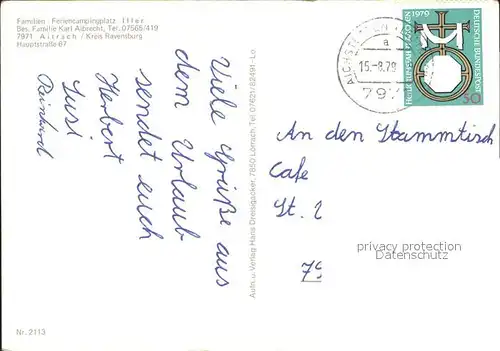 Familien - Feriencampingplatz Iller
Bes. Familie Karl Albrecht, Tel. 07565/419
7971 Aitrach / Kreis Ravensburg
Hauptstraße 67
Viele Grüße aus
dem Urlaub
sendet euch
Herbert
Susi
Reinhard
Nr. 2113
Aufn. u. Verlag Hans Dreisigacker, 7850 Lörrach, Tel. 07621/82491-Lo.
a
15.-8.79
797
1979
DEUTSCHE BUNDESPOST
50
An den Stammtisch
Cafe
St. 2
79
privacy protection
Datenschutz